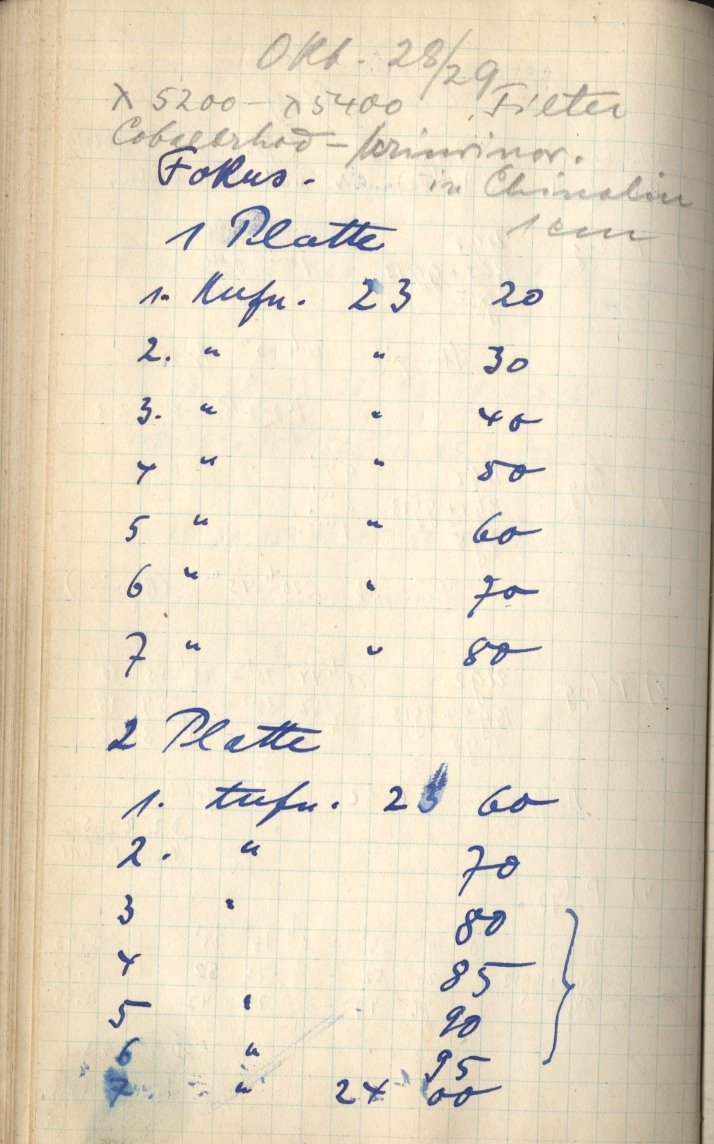 Okt. 28/29
λ 5200 – λ 5400 Filter
in Chinolin
Fokus.
1 cm
1 Platte
1. Aufn. 23 20
2. " " 30
3. " " 40
4 " " 50
5 " " 60
6 " " 70
7 " " 80
2 Platte
1. Aufn. 23 60
2. " 70
3 " 80
4 85
5 " 90
6 " 95
7. " 24 00